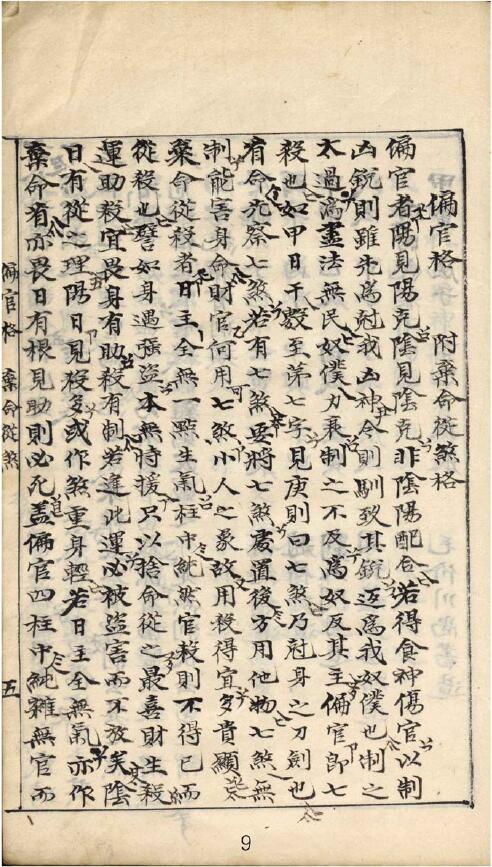 偏官格 附棄命從煞格
偏官者陽見陽克陰見陰克非陰陽配合若得食神傷官以制
凶銳則雖先爲冠我凶神今則馴致其銳迈爲我奴僕也制之
太過爲盡法無民奴僕刀兼制之不及爲奴反其主偏官卽七
殺也如甲日干數至第七字見庚則曰七煞乃冠身之刀劍也
有命先察七煞若有七煞要將七煞處置後方用他物七煞無
制能害身命財官何用七煞小人之象故用殺得宜多貴顯
棄命從殺者日主全無一點生氣柱中純然官殺則不得已而
從殺也譬如身遇强盜本無恃援只以捨命從之最喜財生殺
運助殺宜畏身有助殺有制若逢此運必被盜害而不放矣陰
日有從之理陽日見殺多或作煞重身輕若日主全無氣亦作
棄命者亦畏日有根見助則必死盖偏官四柱中純雜無官而
偏官格 棄命從煞
五
9